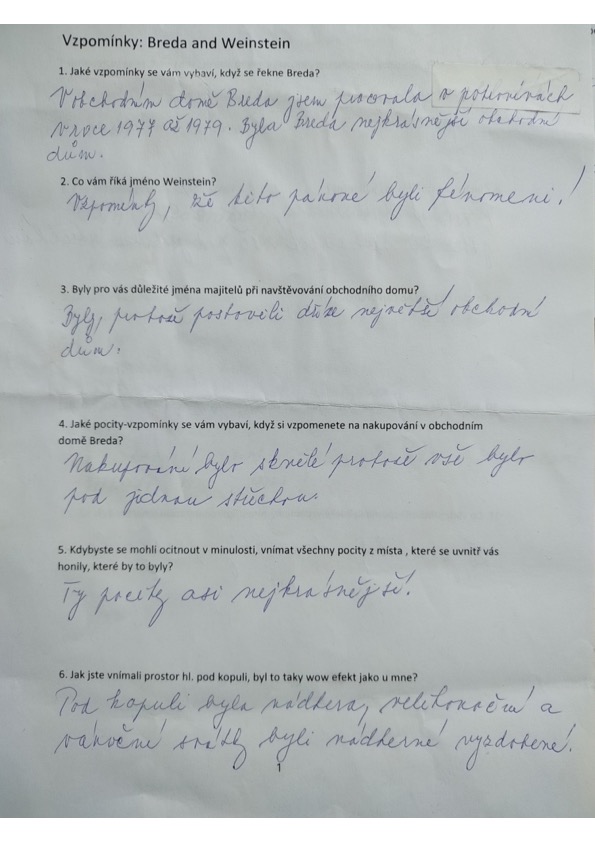 Vzpomínky: Breda and Weinstein
1. Jaké vzpomínky se vám vybaví, když se řekne Breda?
V obchodním domě Breda jsem pracovala v potravinách
v roce 1977 až 1979. Byla Breda nejkrásnější obchodní
dům.
2. Co vám říká jméno Weinstein?
Vzpomínky, že tito pánové byli fénomeni!
3. Byly pro vás důležité jména majitelů při navštěvování obchodního domu?
Byly, protože postavili největší obchodní
dům.
4. Jaké pocity-vzpomínky se vám vybaví, když si vzpomenete na nakupování v obchodním
domě Breda?
Nakupování bylo skvělé protože vše bylo
pod jednou střechou.
5. Kdybyste se mohli ocitnout v minulosti, vnímat všechny pocity z místa , které se uvnitř vás
honily, které by to byly?
Ty pocity asi nejkrásnější.
6. Jak jste vnímali prostor hl. pod kopuli, byl to taky wow efekt jako u mne?
Pod kopuli byla nádhera, velikonoční a
vánoční svátky byli nádherné vyzdobené.
1